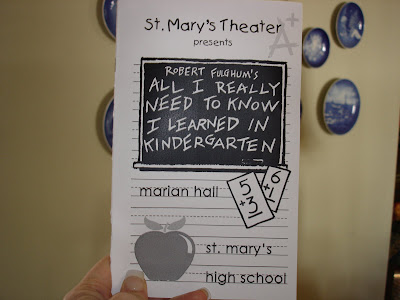 St. Mary's Theater
presents
A+
ROBERT FULGHUM'S
ALL I REALLY
NEED TO KNOW
I LEARNED IN
KINDERGARTEN
marian hall
5
+3
6
st. mary's
high school